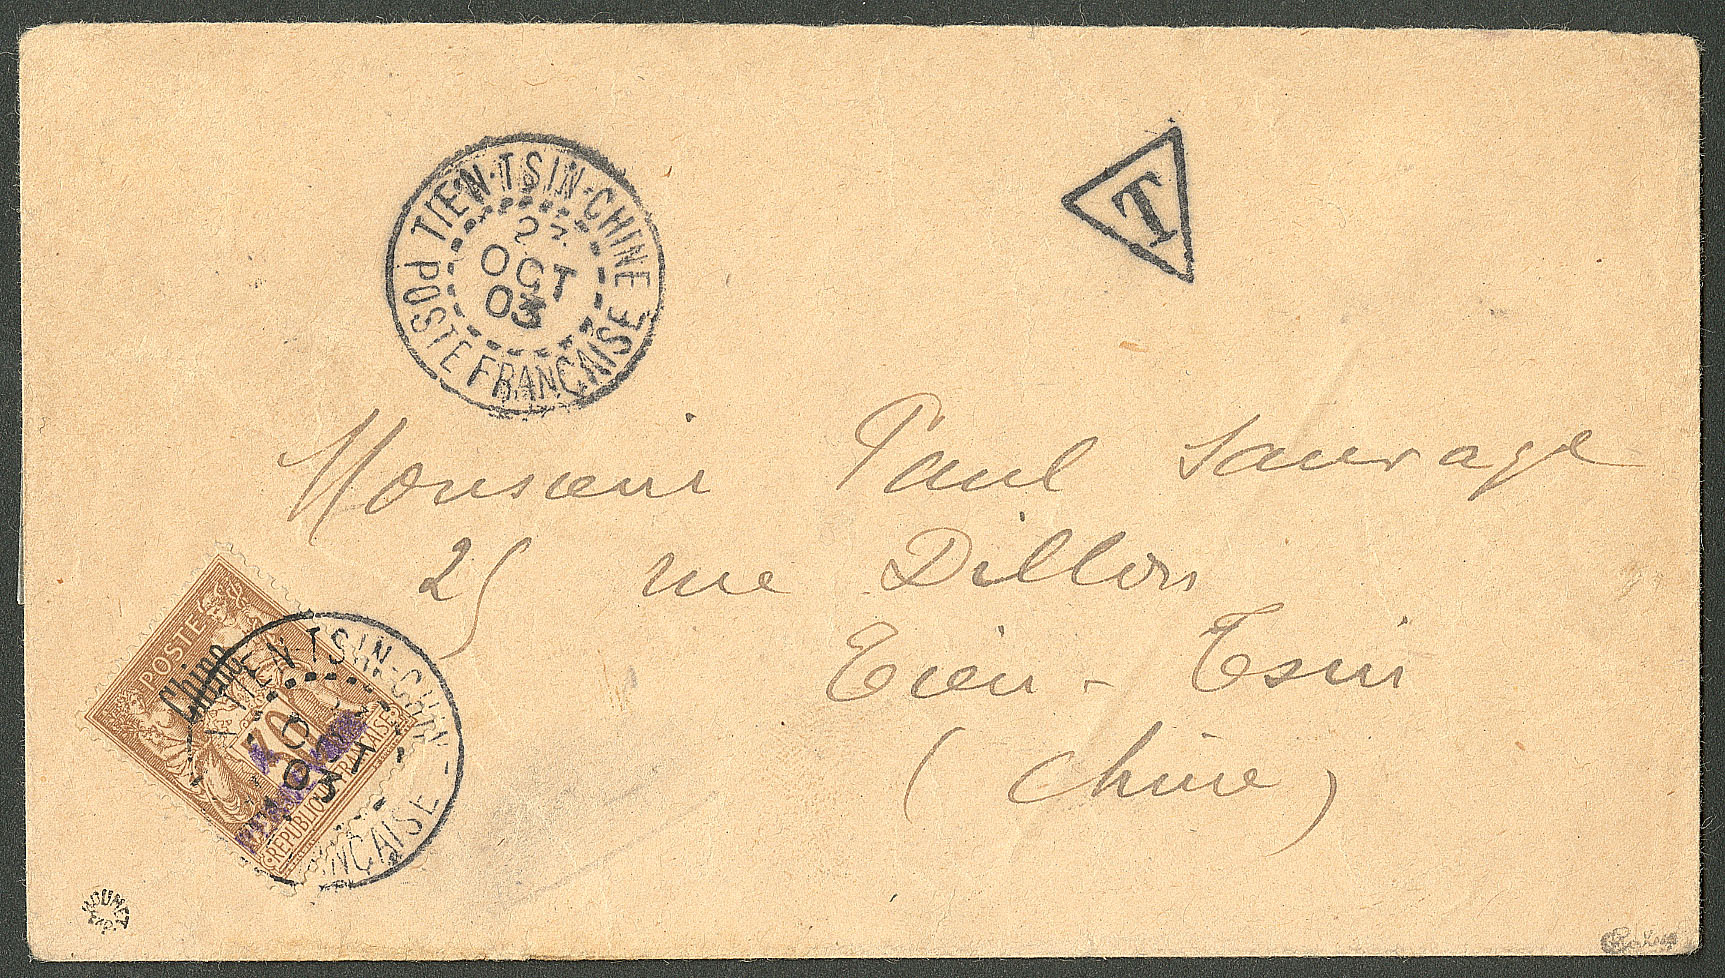 TIEN-TSIN-CHINE
23
OCT
03
POSTE FRANÇAISE
T
Monsieur Paul Sauvage
25 rue Dillon
Tien-Tsin
(Chine)
POSTE
Chine
30
A
PERCEVOIR
REPUBLIQUE FRANÇAISE
TIEN-TSIN-CHINE
OCT
03
FRANÇAISE
ROUMET
EXP.